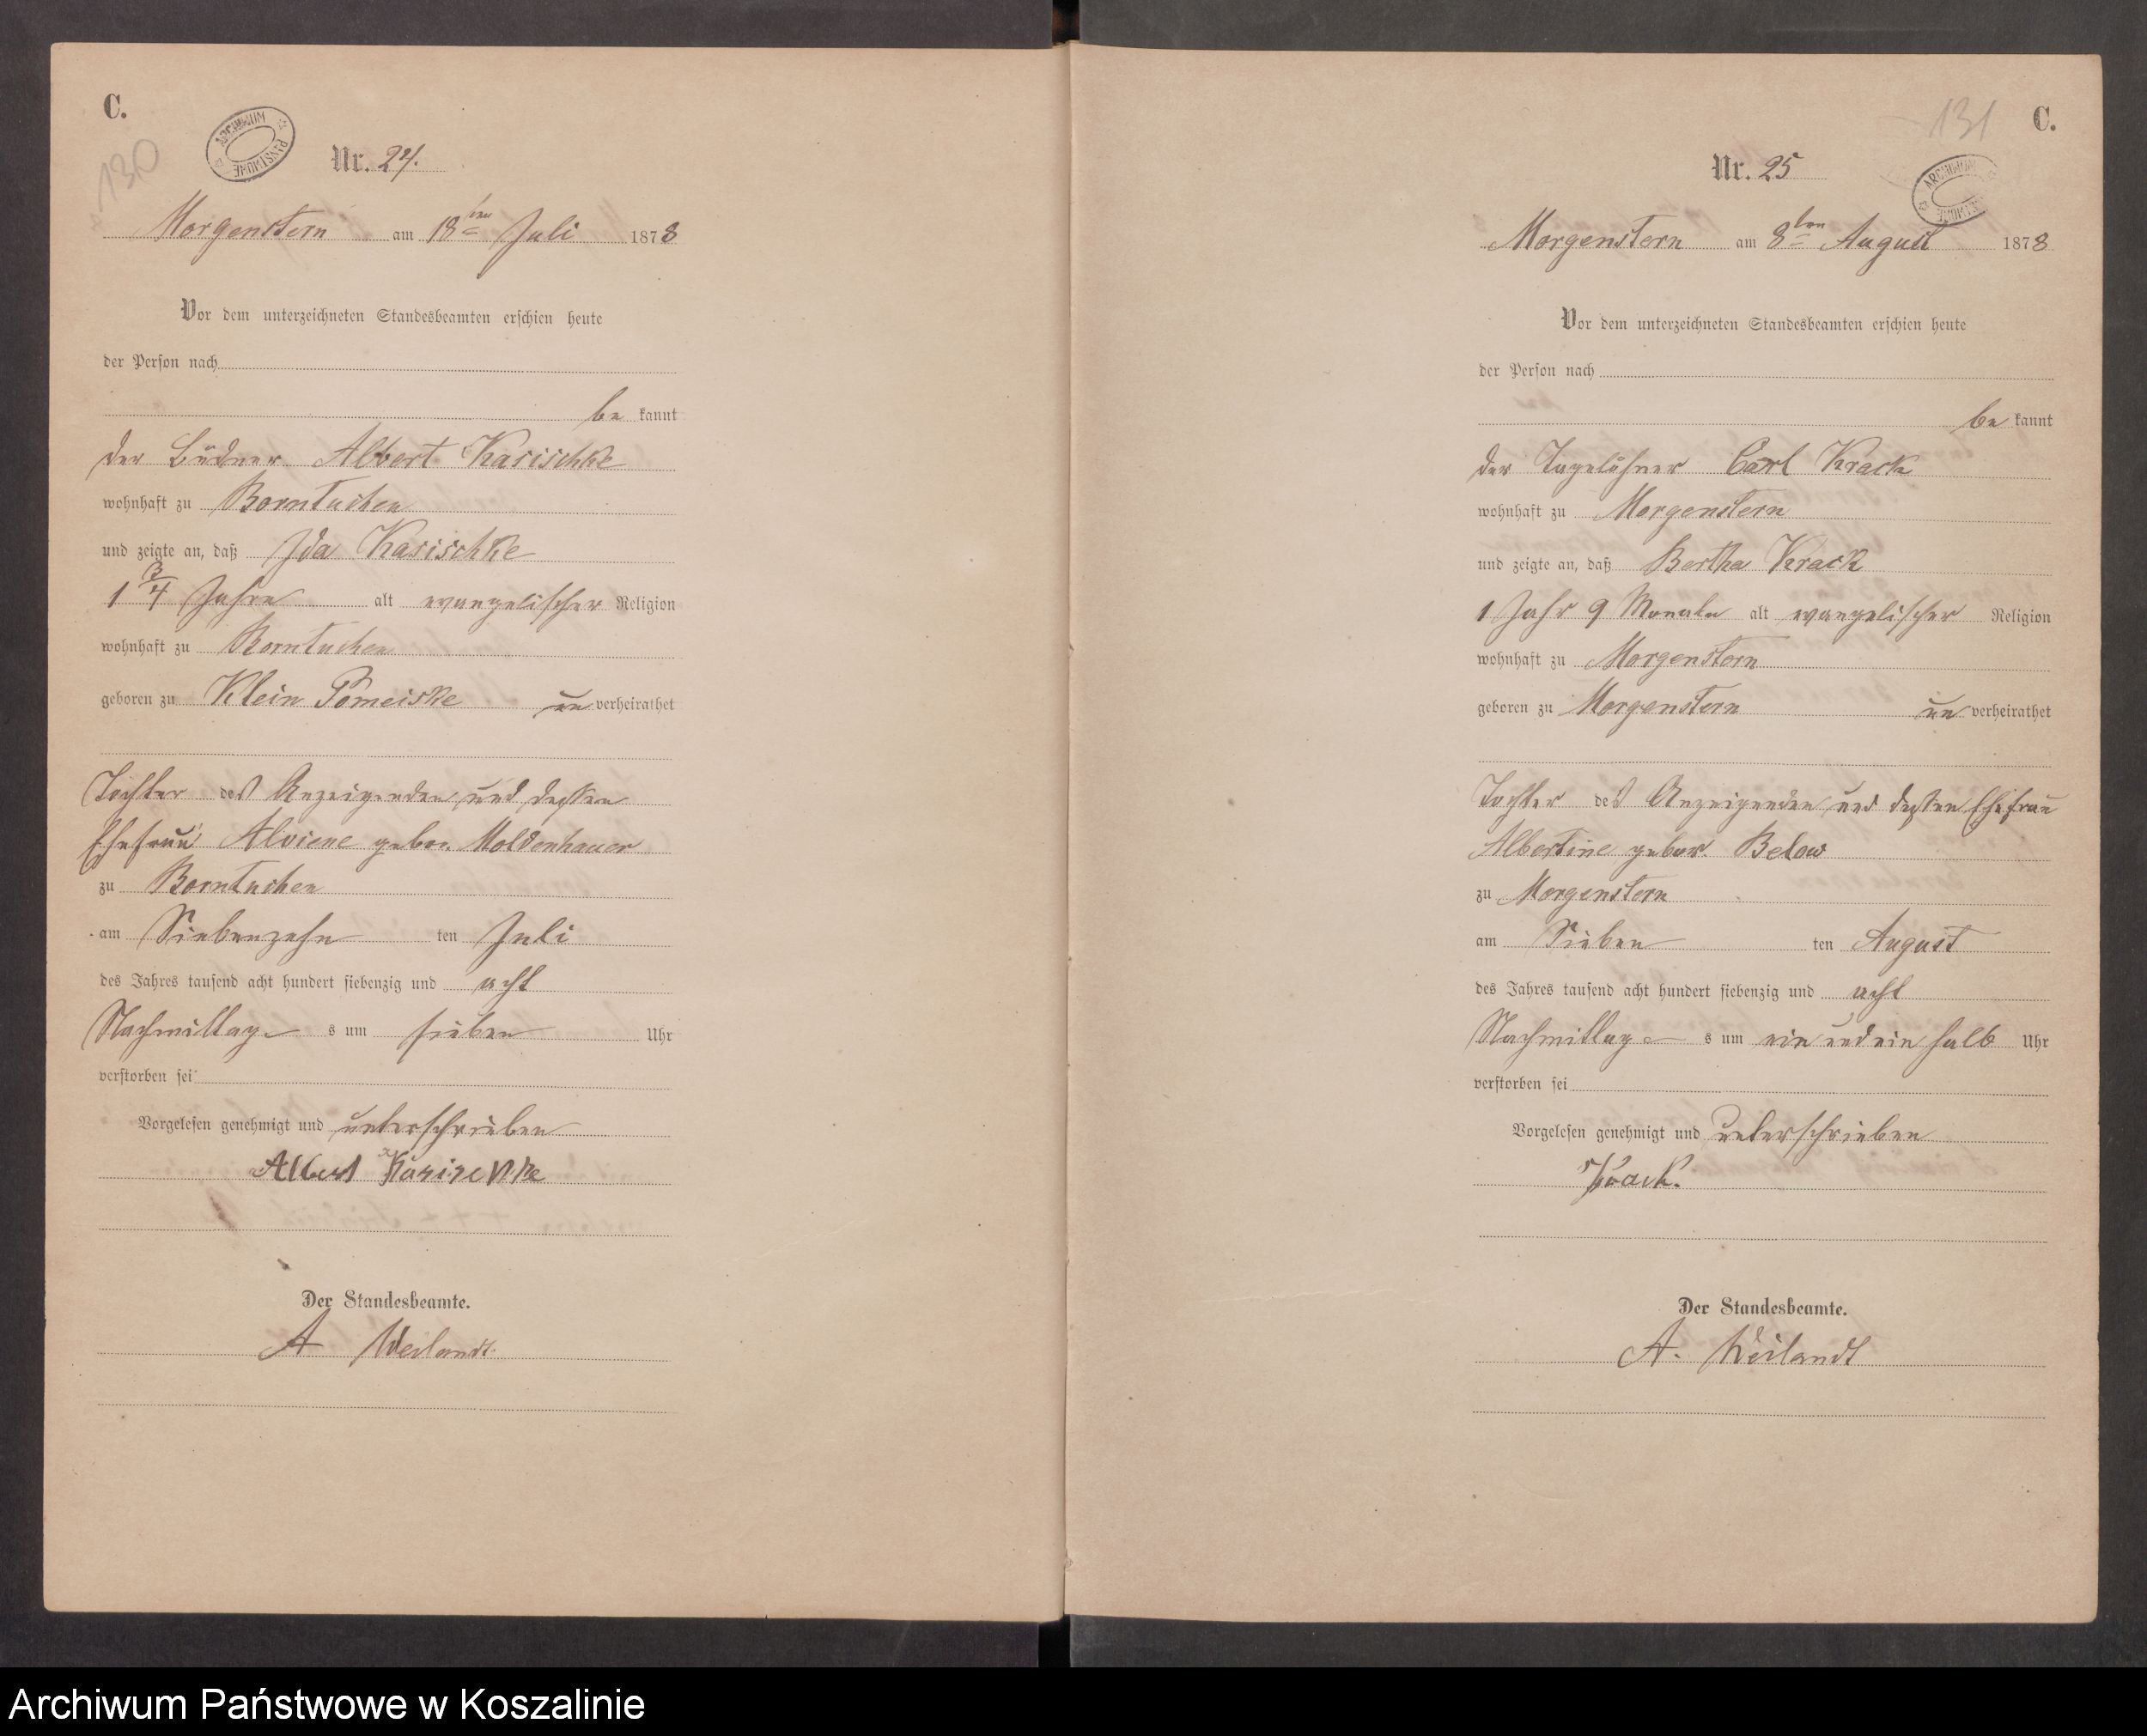 C.
130
ARCHIWUM PAŃSTWOWE
Nr. 24.
Morgenstern am 18ten Juli 1878
Vor dem unterzeichneten Standesbeamten erschien heute
der Person nach
be kannt
der Büdner Albert Kasischke
wohnhaft zu Borntuchen
und zeigte an, daß Ida Kasischke
1 3/4 Jahre alt evangelischer Religion
wohnhaft zu Borntuchen
geboren zu Klein Pomeiske un verheirathet
Tochter des Anzeigenden und dessen
Ehefrau Alviene gebor. Moldenhauer
zu Borntuchen
am Siebenzehn ten Juli
des Jahres tausend acht hundert siebenzig und acht
Nachmittag s um sieben Uhr
verstorben sei
Vorgelesen genehmigt und unterschrieben
Albert Kasischke
Der Standesbeamte.
A Weilandt.
131
C.
ARCHIWUM PAŃSTWOWE
Nr. 25
Morgenstern am 8ten August 1878
Vor dem unterzeichneten Standesbeamten erschien heute
der Person nach
be kannt
der Tagelöhner Carl Krack
wohnhaft zu Morgenstern
und zeigte an, daß Bertha Krack
1 Jahr 9 Monate alt evangelischer Religion
wohnhaft zu Morgenstern
geboren zu Morgenstern un verheirathet
Tochter des Anzeigenden und dessen Ehefrau
Albertine gebor. Below
zu Morgenstern
am Sieben ten August
des Jahres tausend acht hundert siebenzig und acht
Nachmittag s um ein und ein halb Uhr
verstorben sei
Vorgelesen genehmigt und unterschrieben
Krack.
Der Standesbeamte.
A. Weilandt
Archiwum Państwowe w Koszalinie